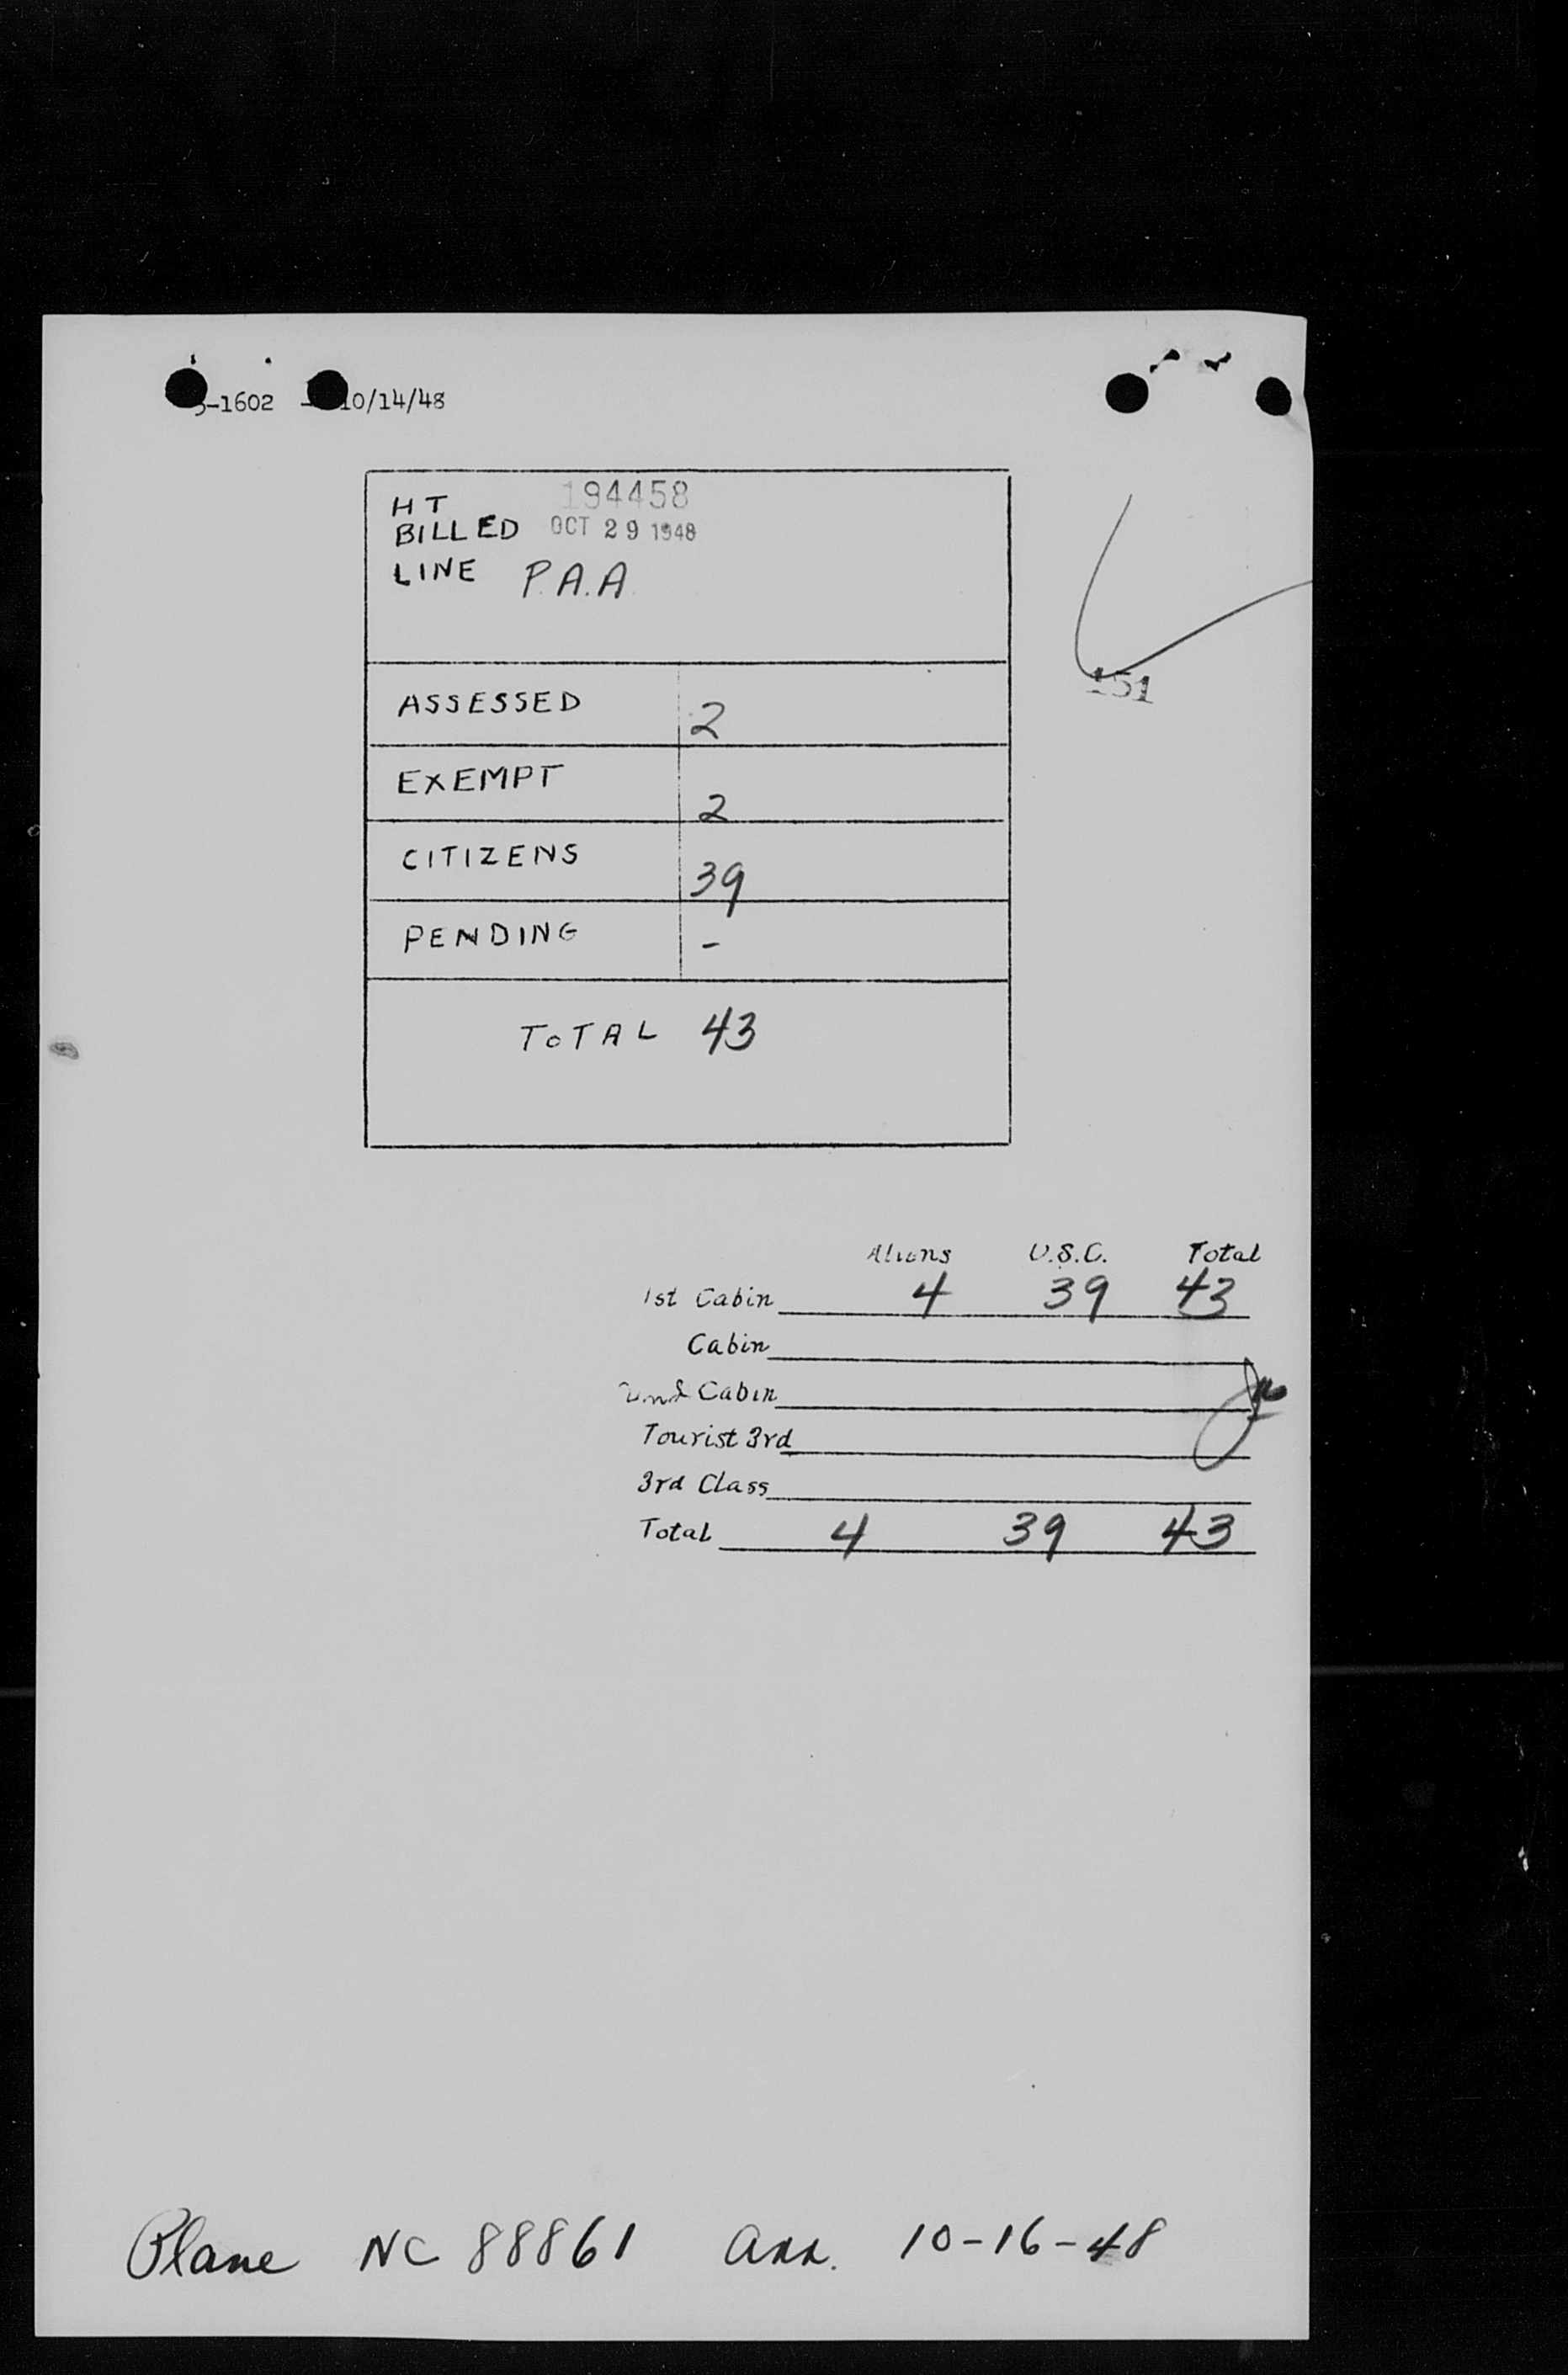 -1602 - 10/14/48
HT 194458
BILLED OCT 29 1948
LINE P.A.A
151
ASSESSED 2
EXEMPT 2
CITIZENS 39
PENDING -
TOTAL 43
Aliens U.S.C. Total
1st Cabin 4 39 43
Cabin
2nd Cabin
Tourist 3rd
3rd Class
Total 4 39 43
Plane NC 88861 Arr. 10-16-48